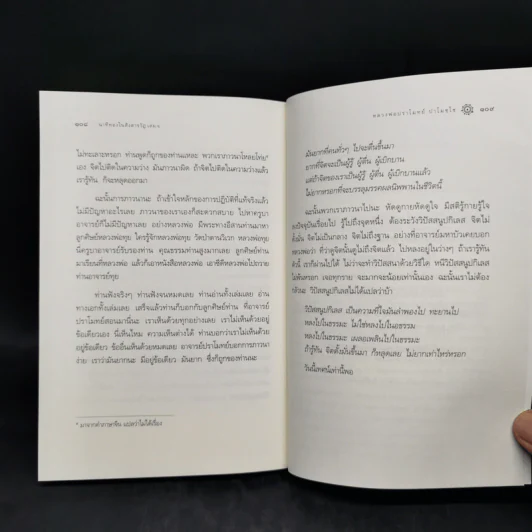 ๑๐๘
นาทีทองในสังสารวัฏ เล่ม ๖
ไม่ทะเลาะหรอก ท่านพูดก็ถูกของท่านแหละ พวกเราภาวนาโหลยโท่ย*
เอง จิตไปติดในความว่าง มันภาวนาผิด ถ้าจิตไปติดในความว่างแล้ว
เรารู้ทัน ก็จะหลุดออกมา
ฉะนั้นการภาวนาน่ะ ถ้าเข้าใจหลักของการปฏิบัติที่แท้จริงแล้ว
ไม่มีปัญหาอะไรเลย ภาวนาของเราเองก็สะดวกสบาย ไปหาครูบา
อาจารย์ก็ไม่มีปัญหาเลย อย่างหลวงพ่อ มีพระทางอีสานท่านมาหา
ลูกศิษย์หลวงพ่อทุย ใครรู้จักหลวงพ่อทุย วัดป่าดานวิเวก หลวงพ่อทุย
นี่ครูบาอาจารย์รับรองท่าน คุณธรรมท่านสูงมากเลย ลูกศิษย์ท่าน
มาเรียนที่หลวงพ่อ แล้วก็เอาหนังสือหลวงพ่อ เอาซีดีหลวงพ่อไปถวาย
ท่านอาจารย์ทุย
ท่านฟังจริงๆ ท่านฟังจนหมดเลย ท่านอ่านทั้งเล่มเลย อ่าน
ทางเอกทั้งเล่มเลย เสร็จแล้วท่านก็บอกกับลูกศิษย์ท่าน ที่อาจารย์
ปราโมทย์สอนมานี่นะ เราเห็นด้วยทุกอย่างเลย เราไม่เห็นด้วยอยู่
ข้อเดียวเอง นี่เห็นไหม ความเห็นต่างได้ ท่านบอกว่าเราไม่เห็นด้วย
อยู่ข้อเดียว ข้ออื่นเห็นด้วยหมดเลย อาจารย์ปราโมทย์บอกการภาวนา
ง่าย เราว่ามันยากนะ มีอยู่ข้อเดียว มันยาก ซึ่งก็ถูกของท่านนะ
* มาจากคำภาษาจีน แปลว่าไม่ได้เรื่อง
หลวงพ่อปราโมทย์ ปาโมชฺโช
๑๐๙
มันยากที่คนทั่วๆ ไปจะตื่นขึ้นมา
ยากที่จิตจะเป็นผู้รู้ ผู้ตื่น ผู้เบิกบาน
แต่ถ้าจิตของเราเป็นผู้รู้ ผู้ตื่น ผู้เบิกบานแล้ว
ไม่ยากหรอกที่จะบรรลุมรรคผลนิพพานในชีวิตนี้
ฉะนั้นพวกเราภาวนาไปนะ หัดดูกายหัดดูใจ มีสติรู้กายรู้ใจ
ลงปัจจุบันเรื่อยไป รู้ไปถึงจุดหนึ่ง ต้องระวังวิปัสสนูปกิเลส จิตไม่
ตั้งมั่น จิตไม่เป็นกลาง จิตไม่ถึงฐาน อย่างที่อาจารย์มหาบัวเคยบอก
หลวงพ่อว่า ที่ว่าดูจิตนั้นดูไม่ถึงจิตแล้ว ไปหลงอยู่ในว่างๆ ถ้าเรารู้ทัน
ตัวนี้ เราก็ผ่านไปได้ ไม่ว่าจะทำวิปัสสนาด้วยวิธีใด หนีวิปัสสนูปกิเลส
ไม่พ้นหรอก เจอทุกราย จะมากจะน้อยเท่านั้นเอง ฉะนั้นเราไม่ต้อง
กลัวนะ วิปัสสนูปกิเลสไม่ได้แปลว่าบ้า
วิปัสสนูปกิเลส เป็นความที่ใจมันลำพองไป ทะยานไป
หลงไปในธรรมะ ไม่ใช่หลงไปในอธรรม
หลงไปในธรรมะ เผลอเพลินไปในธรรมะ
ถ้ารู้ทัน จิตตั้งมั่นขึ้นมา ก็หลุดเลย ไม่ยากเท่าไหร่หรอก
วันนี้เทศน์เท่านี้พอ